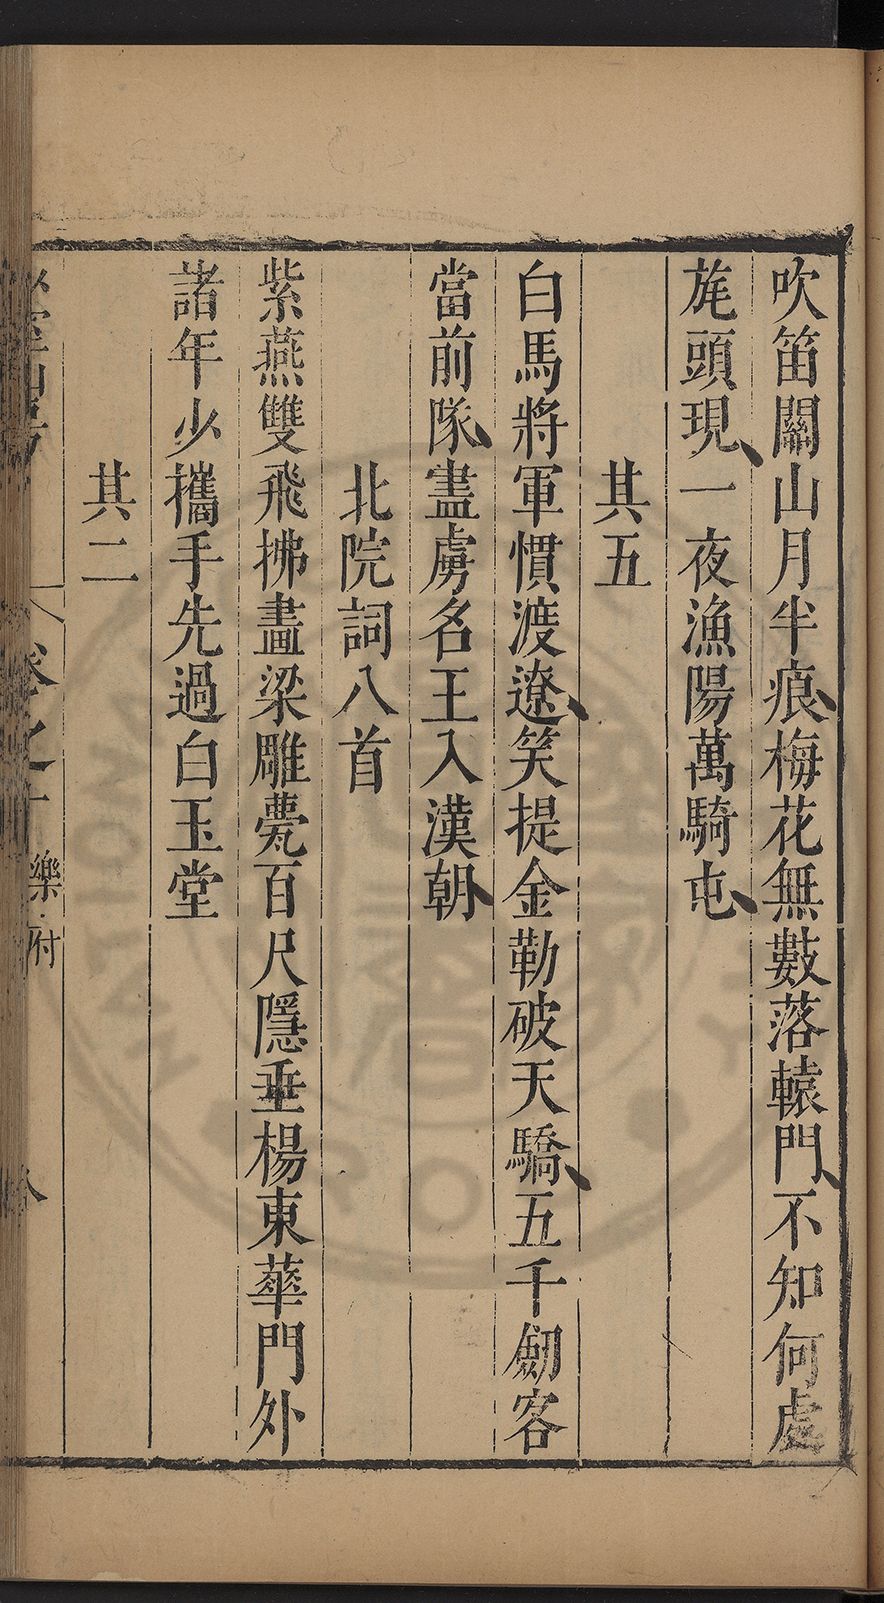 吹笛關山月半痕、梅花無數落轅門、不知何處
旄頭現、一夜漁陽萬騎屯、
其五
白馬將軍慣渡遼、笑提金勒破天驕、五千劒客
當前隊、盡虜名王入漢朝、
北院詞八首
紫燕雙飛拂畫梁雕甍百尺隱垂楊東華門外
諸年少攜手先過白玉堂
其二
卷之十 樂附 八